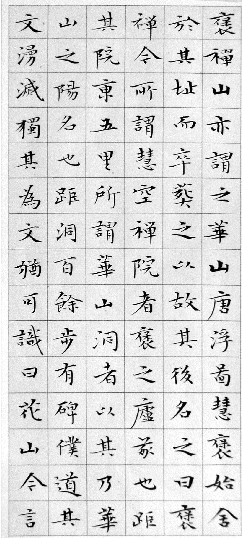 褒禪山亦謂之華山唐浮啚慧褒始舍
於其址而卒葬之以故其後名之曰褒
禪今所謂慧空禪院者褒之廬冢也距
其院東五里所謂華山洞者以其乃華
山之陽名也距洞百餘步有碑僕道其
文漫滅獨其為文猶可識曰花山今言